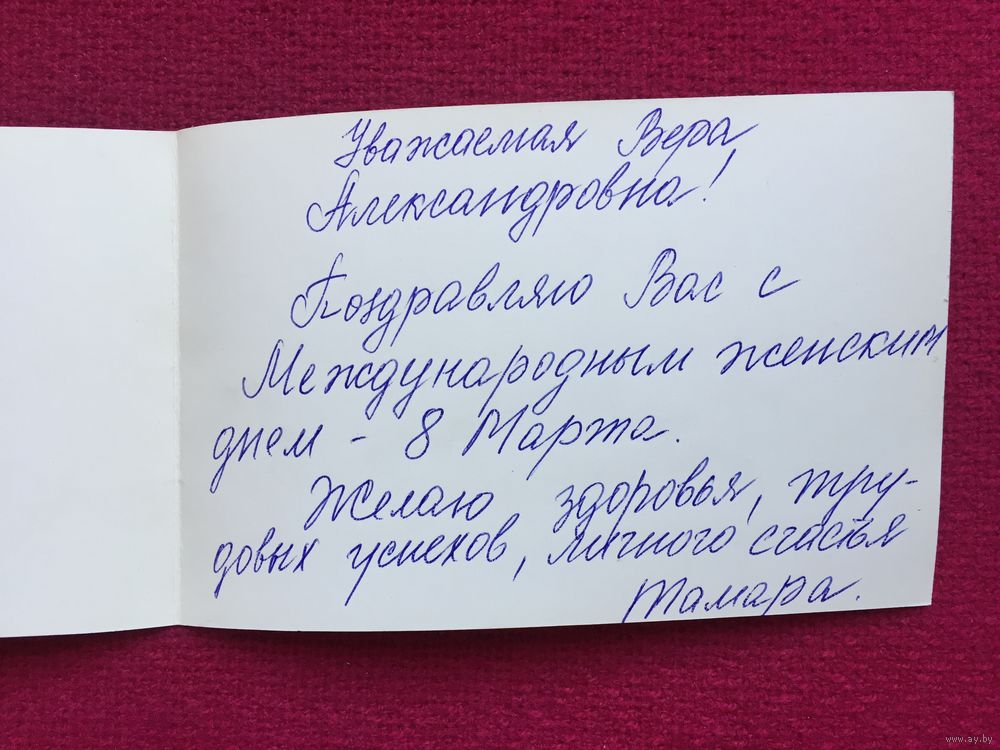 Уважаемая Вера
Александровна!
Поздравляю Вас с
Международным женским
днем - 8 Марта.
Желаю здоровья, тру-
довых успехов, личного счастья
Тамара.
www.ay.by